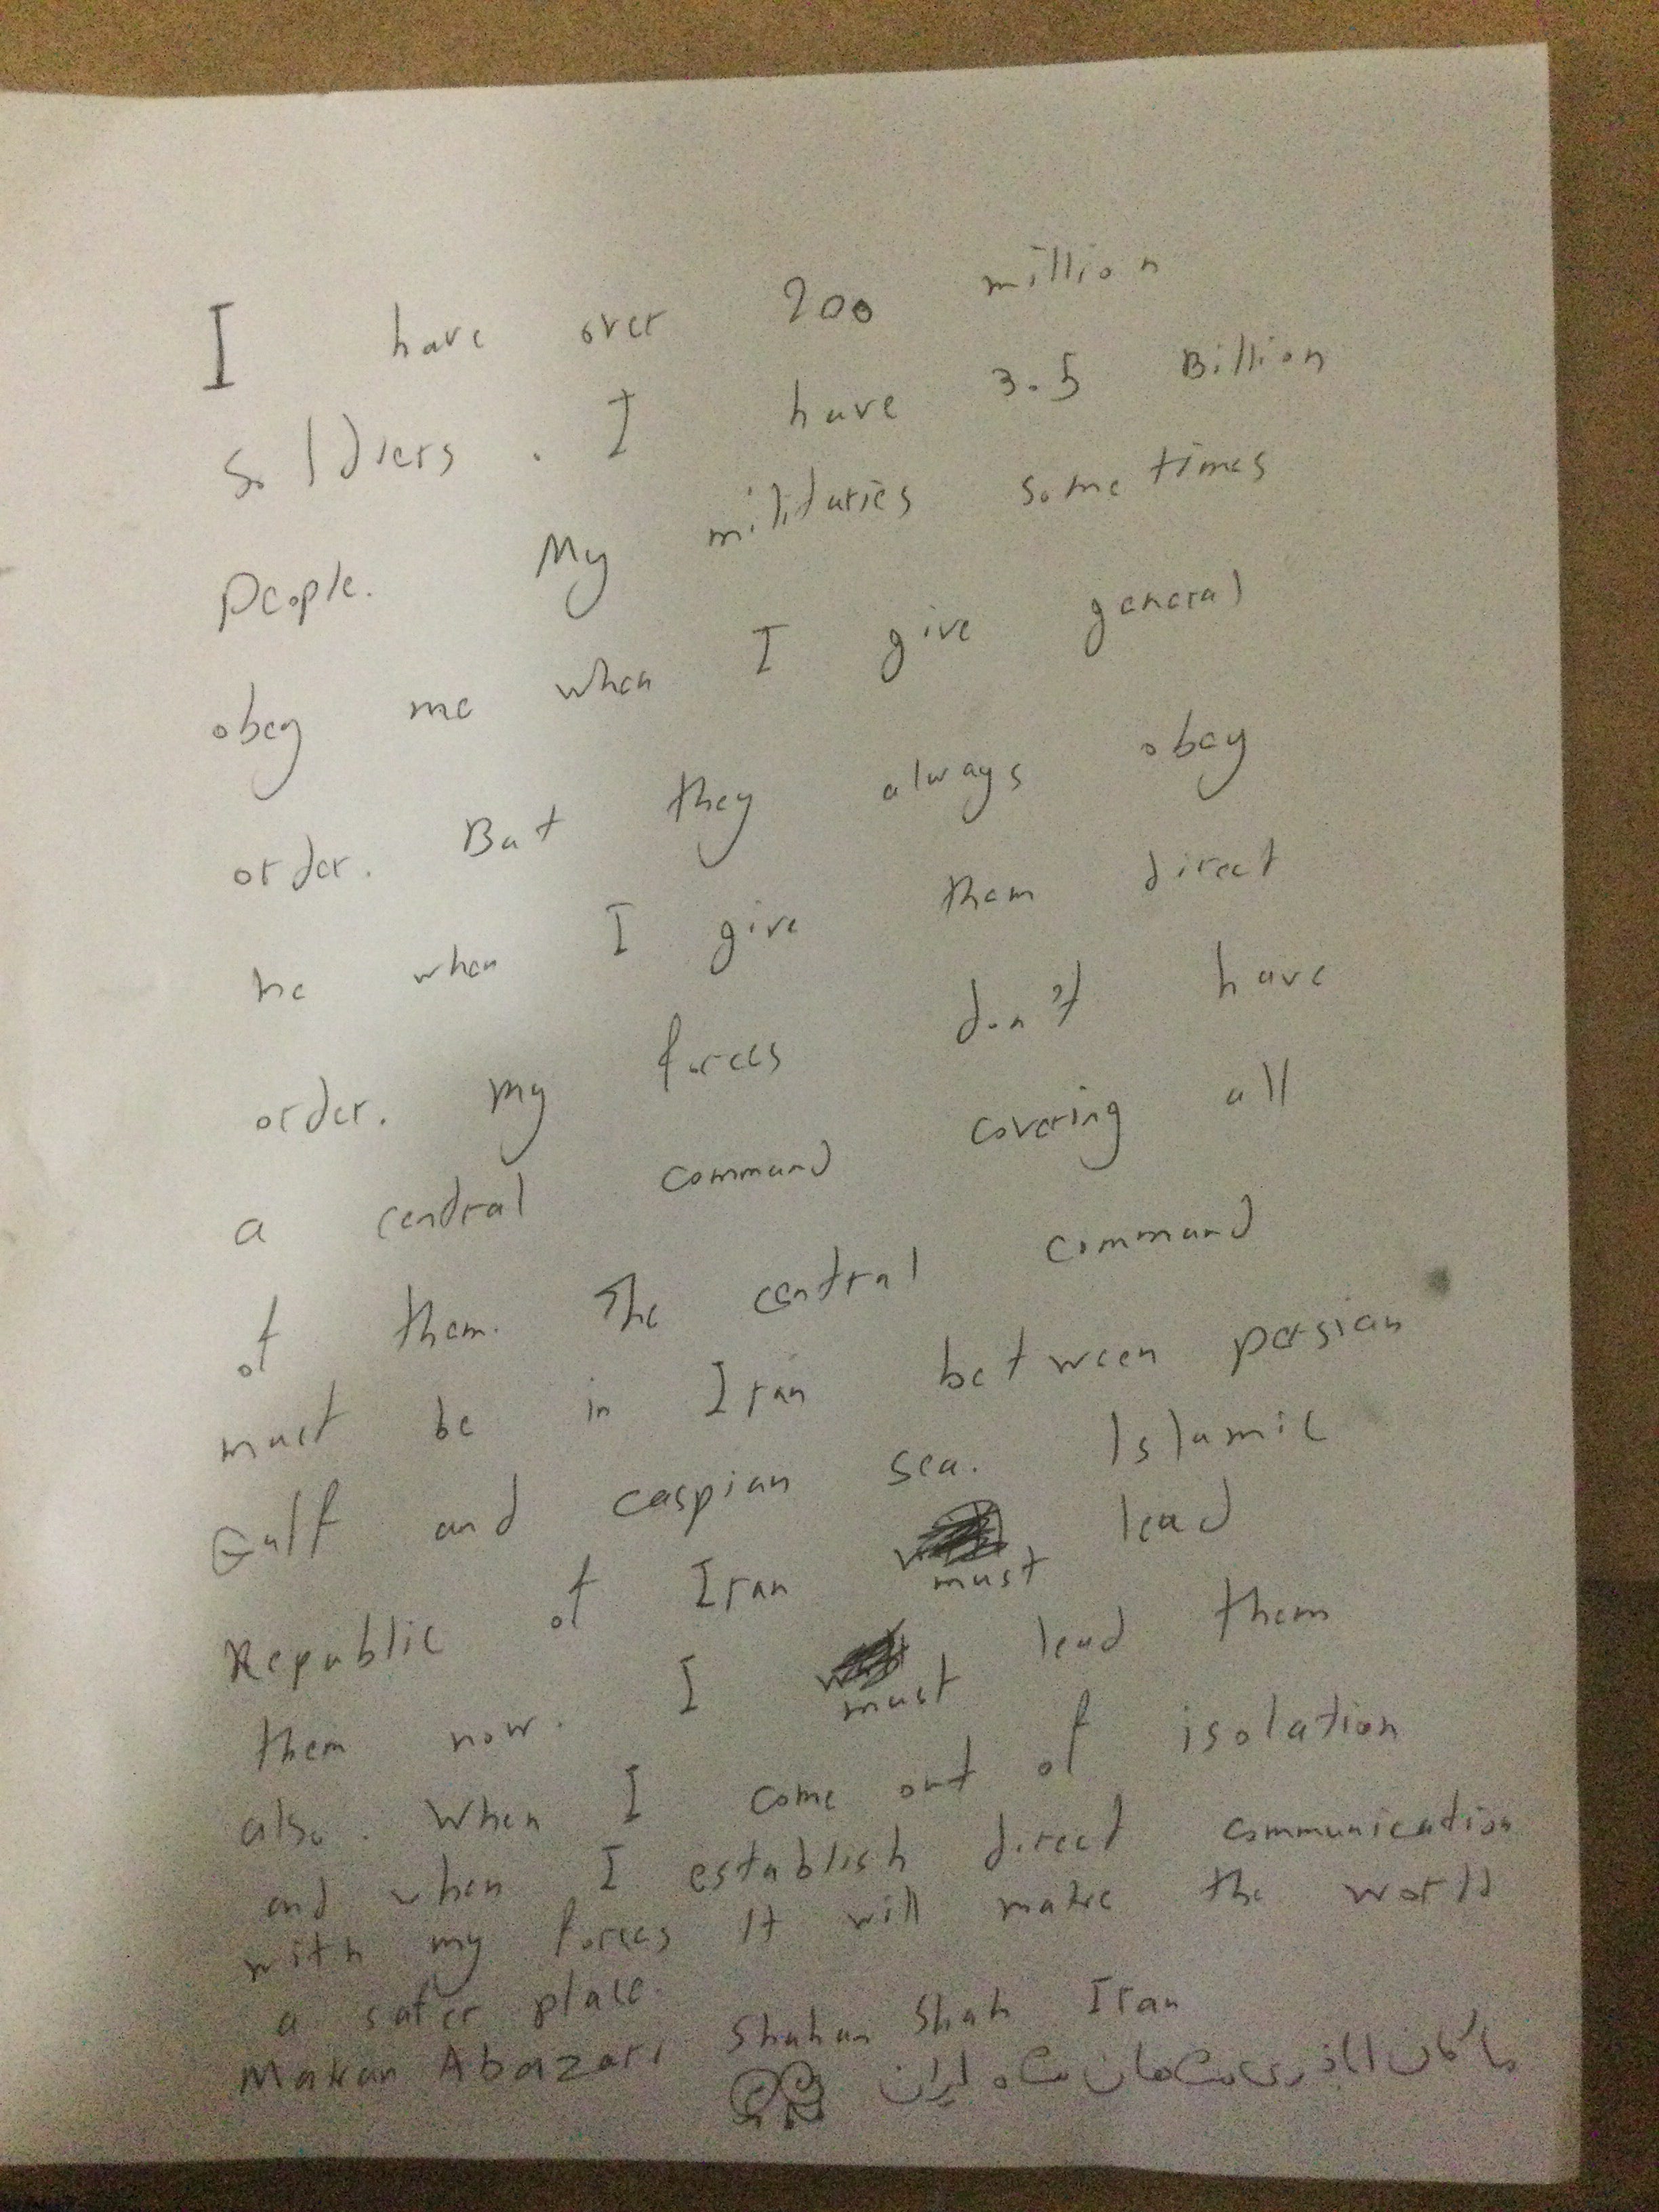 I have over 200 million
soldiers. I have 3.5 Billion
People. My militaries sometimes
obey me when I give general
order. But they always obey
me when I give them direct
order. my forces don't have
a central command covering all
of them. The central command
must be in Iran between persian
Gulf and caspian sea. Islamic
Republic of Iran must lead
them now. I must lead them
also. When I come out of isolation
and when I establish direct communication
with my forces It will make the world
a safer place.
Makan Abazari Shahan Shah Iran
ماکان اباذری شاهان شاه ایران